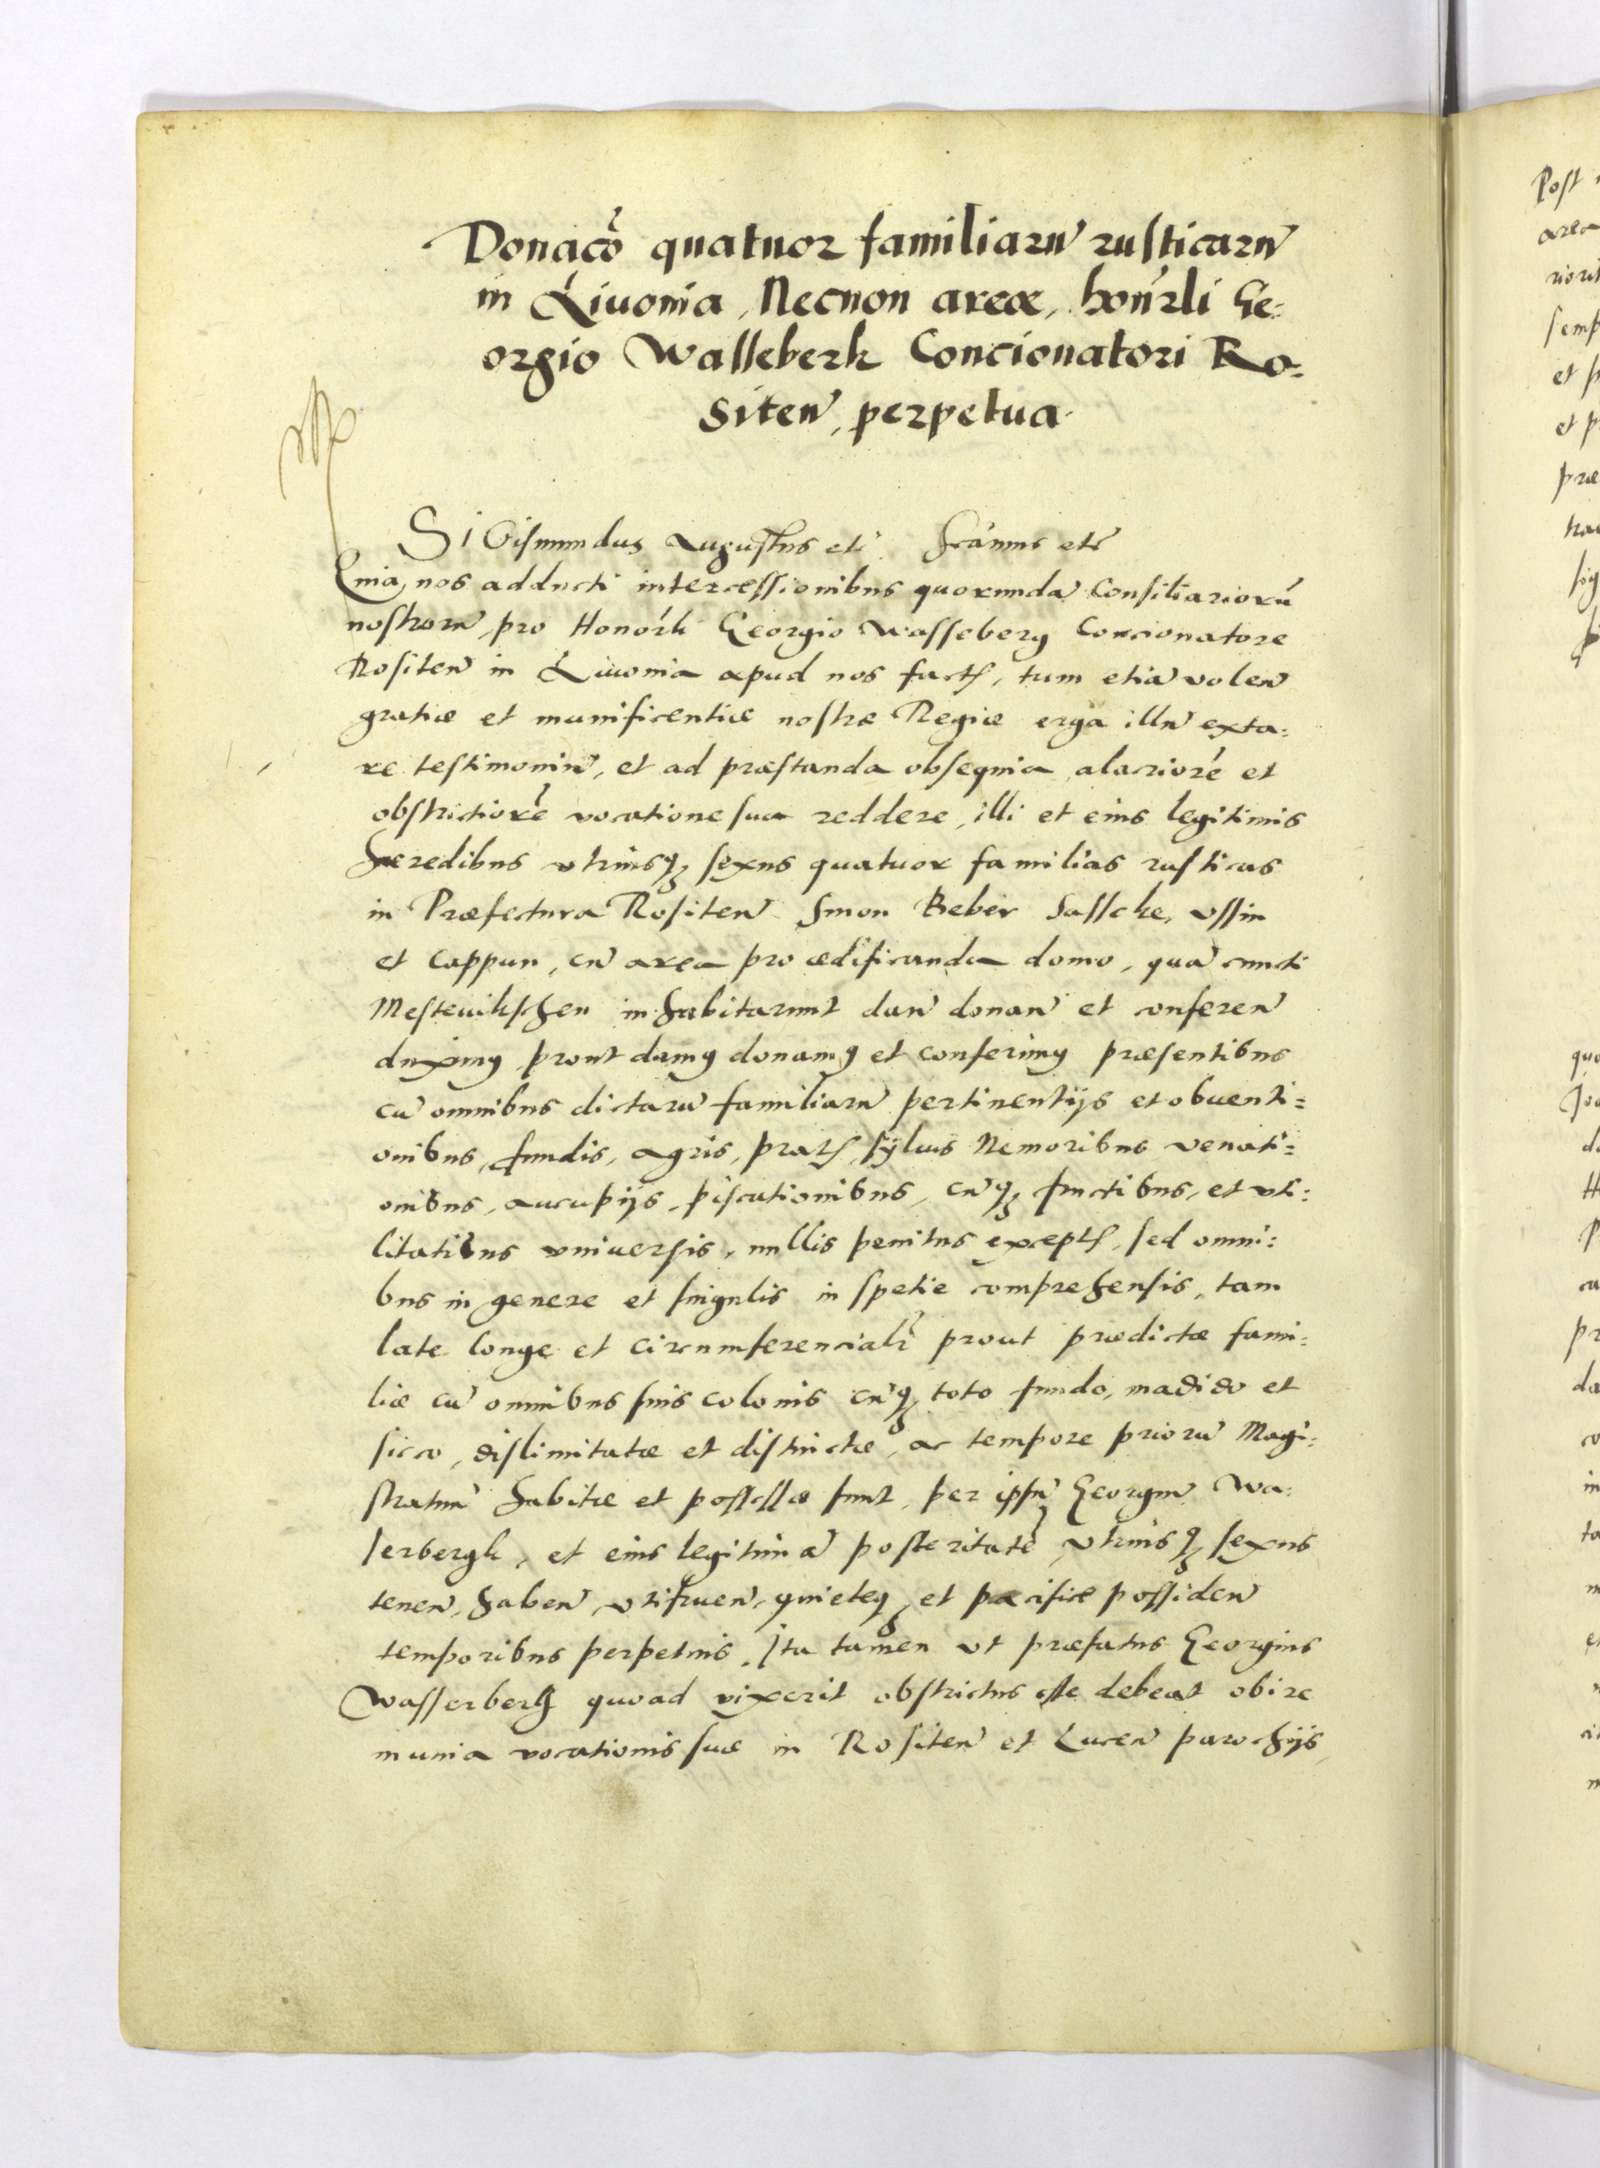 Donacõ quatuor familiarũ rusticarũ
in Liuonia, Necnon areæ, honrli Ge:
orgio Wasseberk Concionatori Ro:
siteñ, perpetua.
SiGismundus Augustus etc Scimus etc
Quia nos adducti intercessionibus quorundã Consiliariorũ
nostrorũ pro Honorli Georgio Wasseberg Concionatore
Rositeñ in Liuonia apud nos fact, tum etiã voleñ
gratiæ et munificentiæ nostræ Regiæ erga illũ exta:
re testimoniũ, et ad præstanda obsequia alacriorẽ et
obstrictiorẽ vocatione sua reddere, illi et eius legitimis
hæredibus vtriusq sexus quatuor familias rusticas
in Præfectura Rositeñ Smon Beber Sasscke, vssin
et Cappun, cũ area pro ædificanda domo, quã cuncti
Mestevikschen inhabitarunt dañ donañ et confereñ
duximus prout damus donamus et conferimus præsentibus
cũ omnibus dictarũ familiarũ pertinentijs et obuenti=
onibus, fundis, agris, prat, syluis Nemoribus venati=
onibus, aucupijs, piscationibus, cũq fructibus, et vti:
litatibus vniuersis, nullis penitus except, sed omni:
bus in genere et singulis in spetie comprehensis, tam
late longe et circumferencialr prout prædictæ fami:
liæ cũ omnibus suis colonis cũq toto fundo, madido et
sicco, dislimitatæ et distinctæ, ac tempore priorũ Magi:
stratuũ habitæ et possessæ sunt, per ipsũ Georgiũ Wa:
serbergk, et eius legitimã posteritatẽ vtriusq sexus
teneñ, habeñ, vtifrueñ, quieteq et pacificæ possideñ
temporibus perpetuis. Ita tamen vt præfatus Georgius
Wasserbergh quoad vixerit obstrictus esse debeat obire
munia vocationis suæ in Rositeñ et Luceñ parochijs,
Post